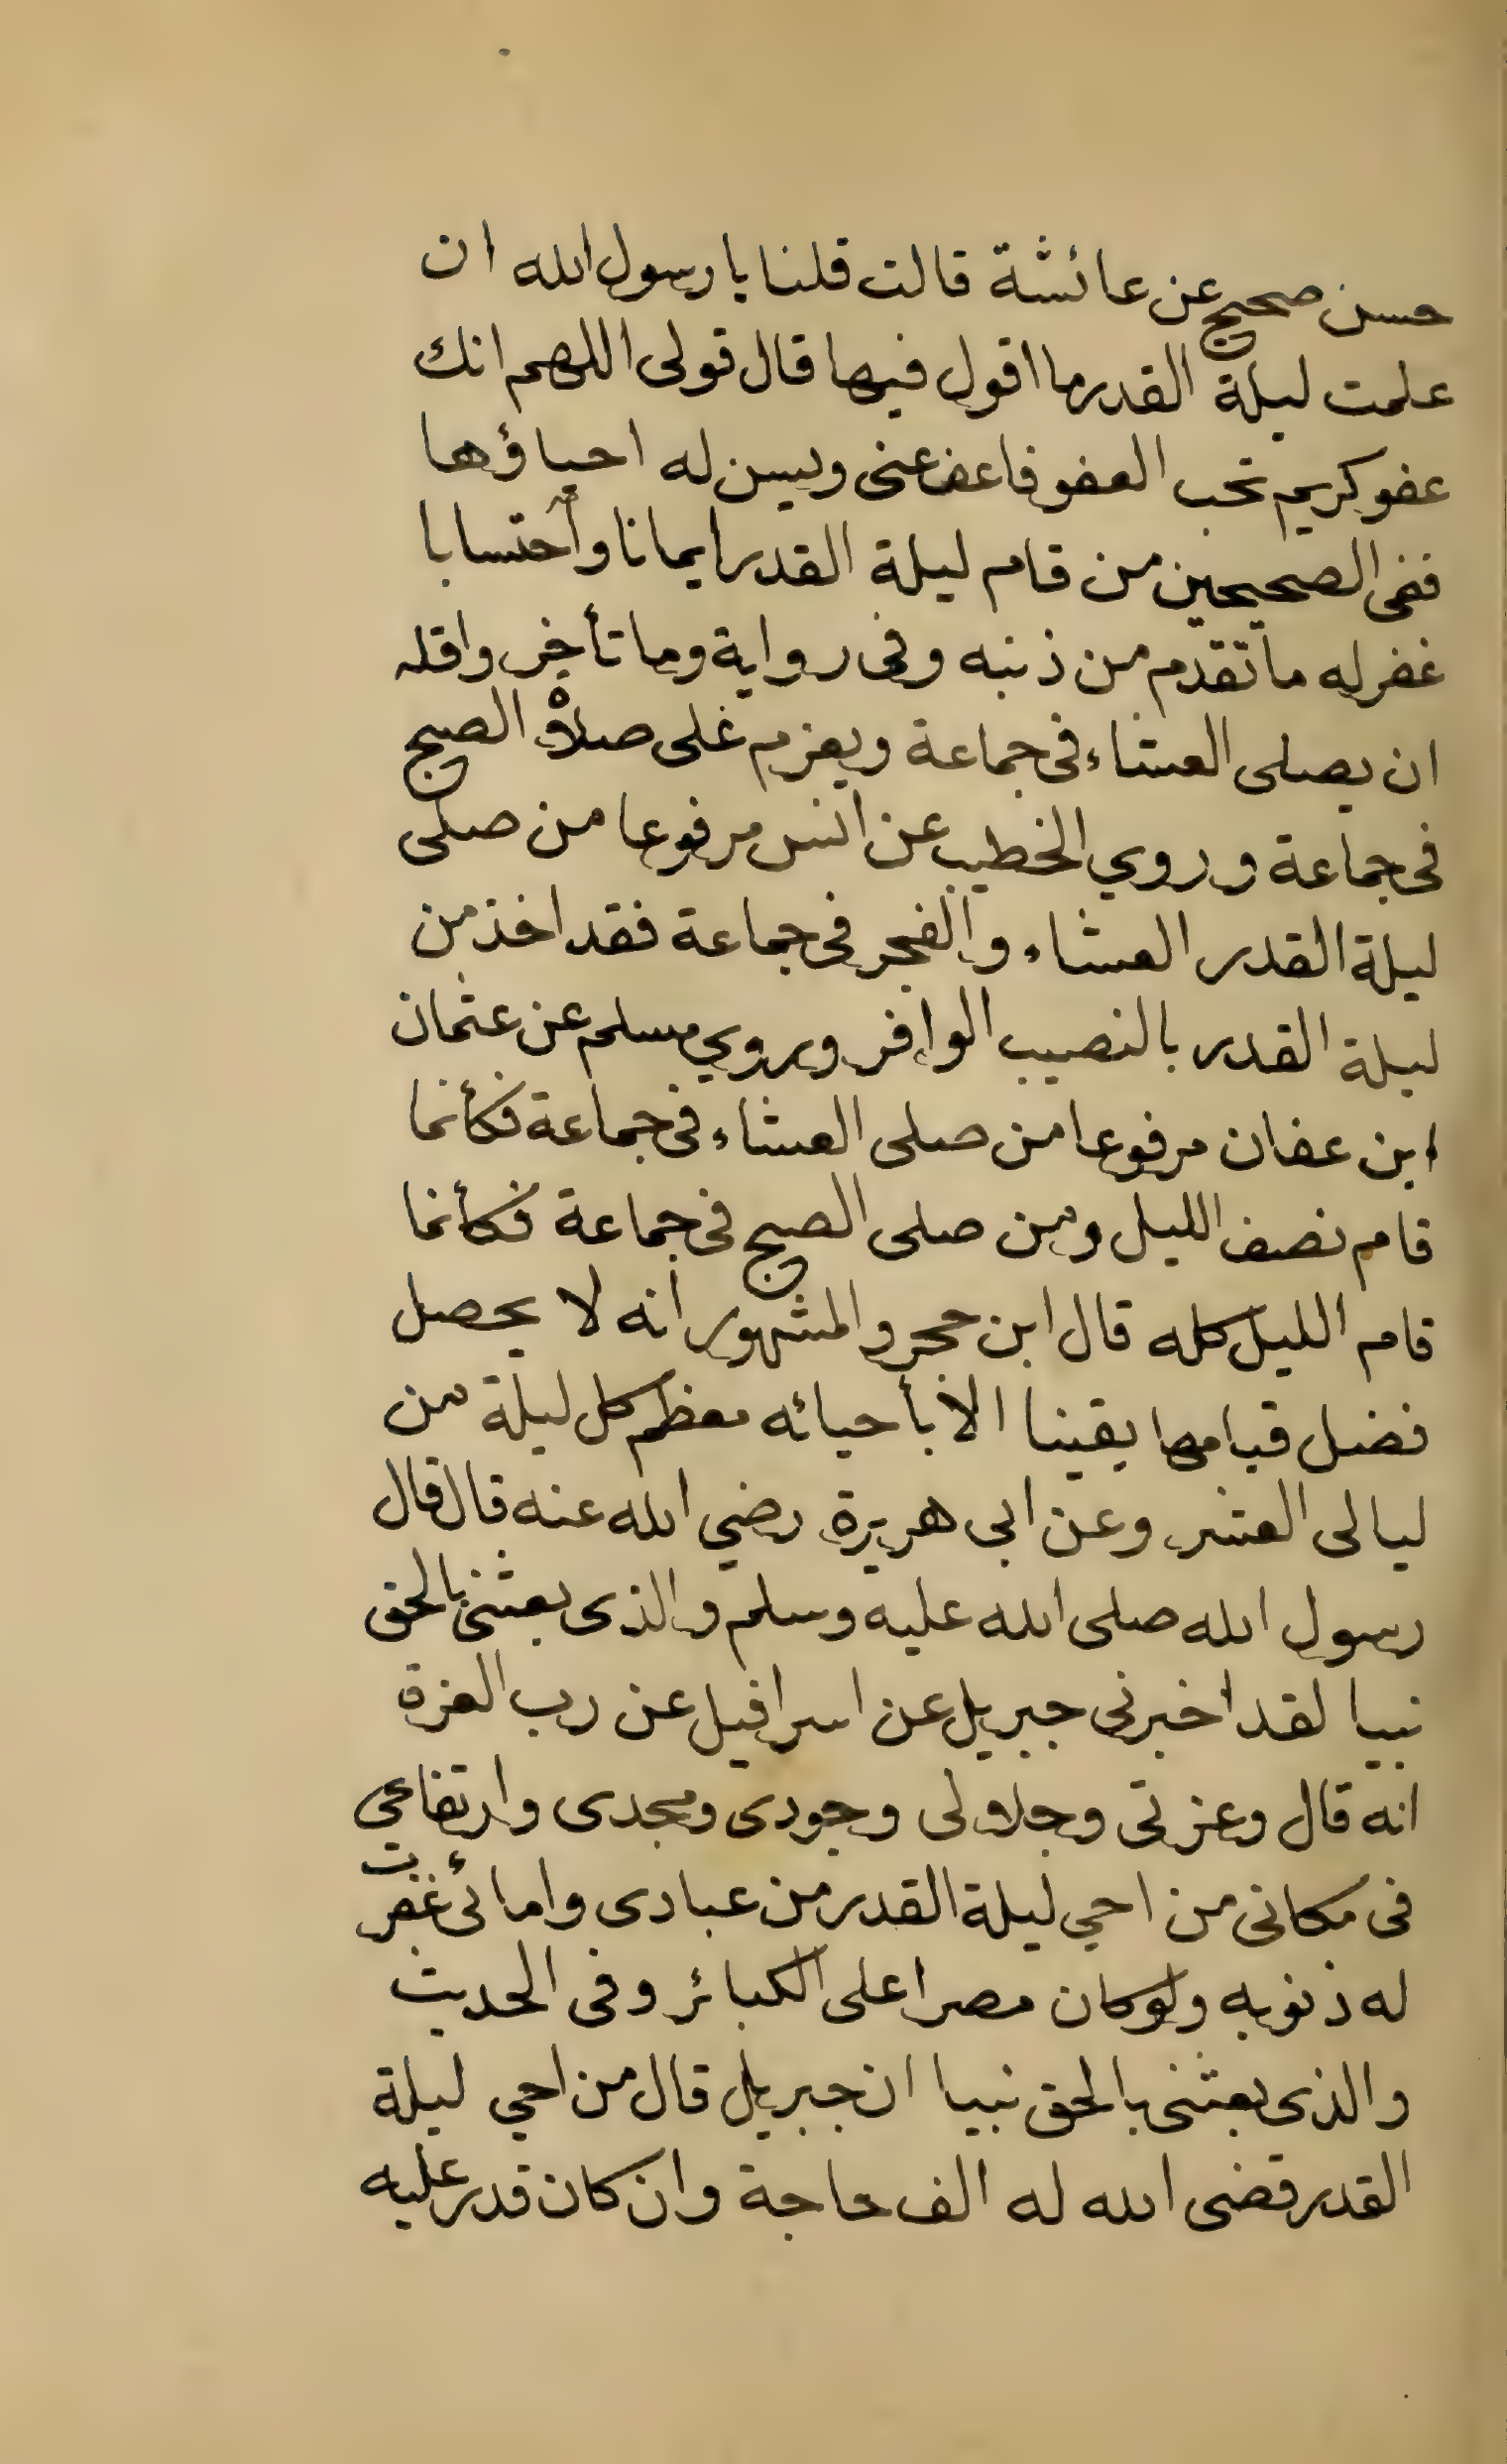 حسن صحيح عن عائشة قالت قلنا يا رسول الله ان
علمت ليلة القدر ما اقول فيها قال قولى اللهم انك
عفو كريم تحب العفو فاعف عنى ويسن له احياؤها
ففى الصحيحين من قام ليلة القدر ايمانا وأحتسابا
غفر له ما تقدم من ذنبه وفى رواية وما تأخر واقله
ان يصلى العشاء فى جماعة ويعزم على صلاة الصبح
فى جماعة وروي الخطيب عن انس مرفوعا من صلى
ليلة القدر العشاء والفجر فى جماعة فقد اخذ من
ليلة القدر بالنصيب الوافر وروي مسلم عن عثمان
ابن عفان مرفوعا من صلى العشاء فى جماعة فكأنما
قام نصف الليل ومن صلى الصبح فى جماعة فكأنما
قام الليل كله قال ابن حجر والمشهور انه لا يحصل
فضل قيامها يقينا الا بأحيائه معظم كل ليلة من
ليالى العشر وعن ابى هريرة رضي الله عنه قال قال
رسول الله صلى الله عليه وسلم والذى بعثنى بالحق
نبيا لقد اخبرنى جبريل عن اسرافيل عن رب العزة
انه قال وعزتى وجلالى وجودى ومجدى وارتفاعي
فى مكانى من احي ليلة القدر من عبادى وامائى غفرت
له ذنوبه ولو كان مصرا على الكبائر وفى الحديث
والذى بعثنى بالحق نبيا ان جبريل قال من احي ليلة
القدر قضى الله له الف حاجة وان كان قدر عليه